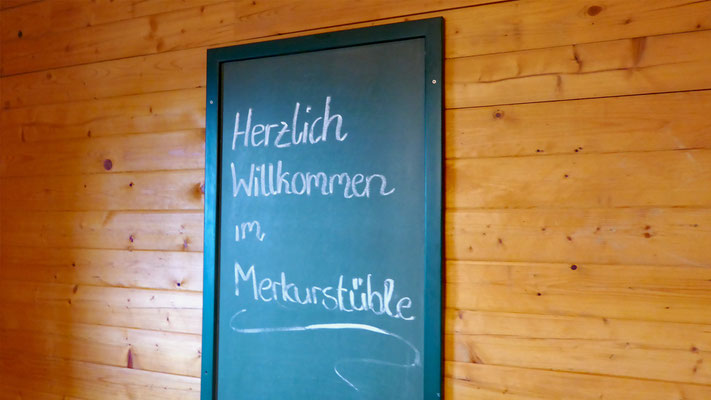 Herzlich
Willkommen
im
Merkurstüble